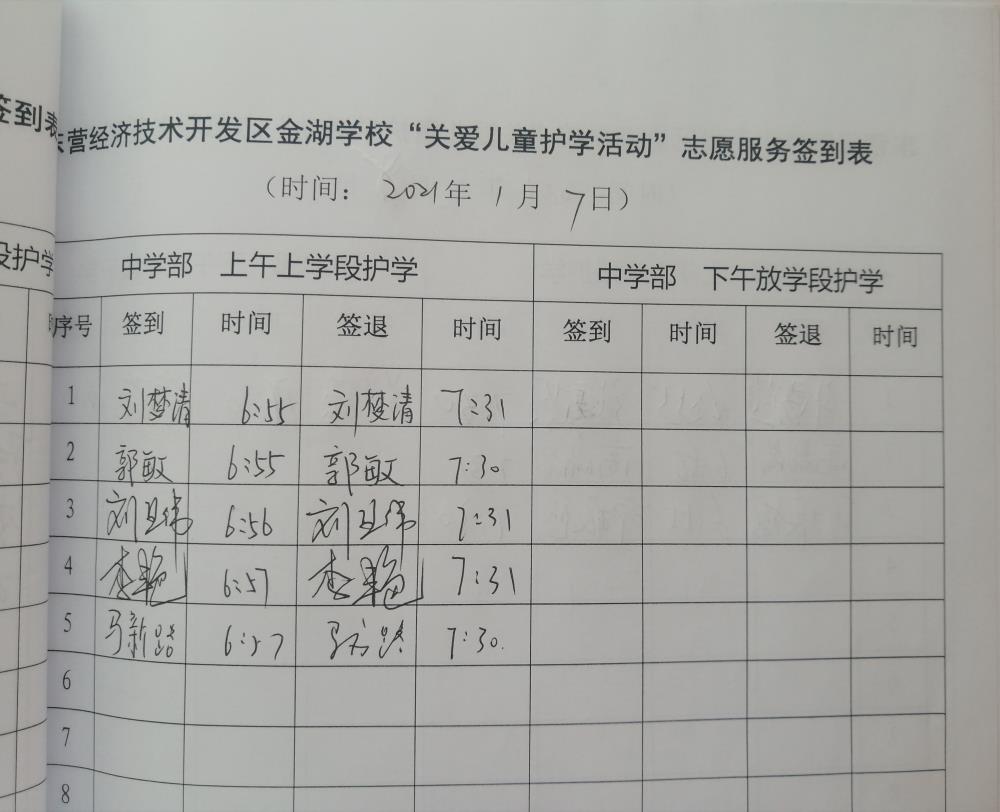 签到表
东营经济技术开发区金湖学校“关爱儿童护学活动”志愿服务签到表
（时间： 2021年 1 月 7日）
段护学
中学部 上午上学段护学 中学部 下午放学段护学
序号 签到 时间 签退 时间 签到 时间 签退 时间
1 刘梦清 6:55 刘梦清 7:31
2 郭敏 6:55 郭敏 7:30
3 刘 6:56 刘 7:31
4 李艳 6:57 李艳 7:31
5 马新路 6:57 马 7:30
6
7
8